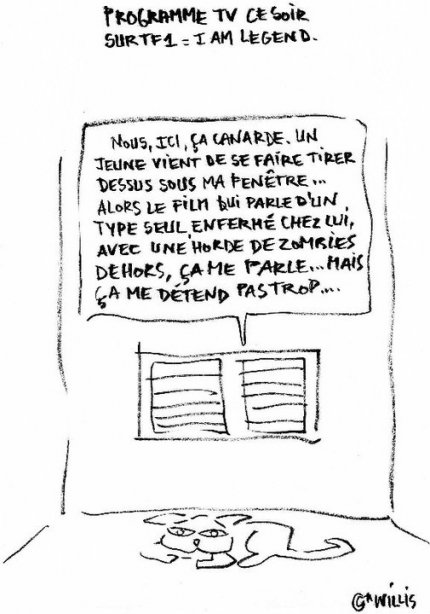 PROGRAMME TV CE SOIR
SUR TF1 = I AM LEGEND.
NOUS, ICI, ÇA CANARDE. UN
JEUNE VIENT DE SE FAIRE TIRER
DESSUS SOUS MA FENÊTRE...
ALORS LE FILM QUI PARLE D'UN
TYPE SEUL ENFERMÉ CHEZ LUI,
AVEC UNE HORDE DE ZOMBIES
DEHORS, ÇA ME PARLE... MAIS
ÇA ME DÉTEND PAS TROP....
G* WILLIS